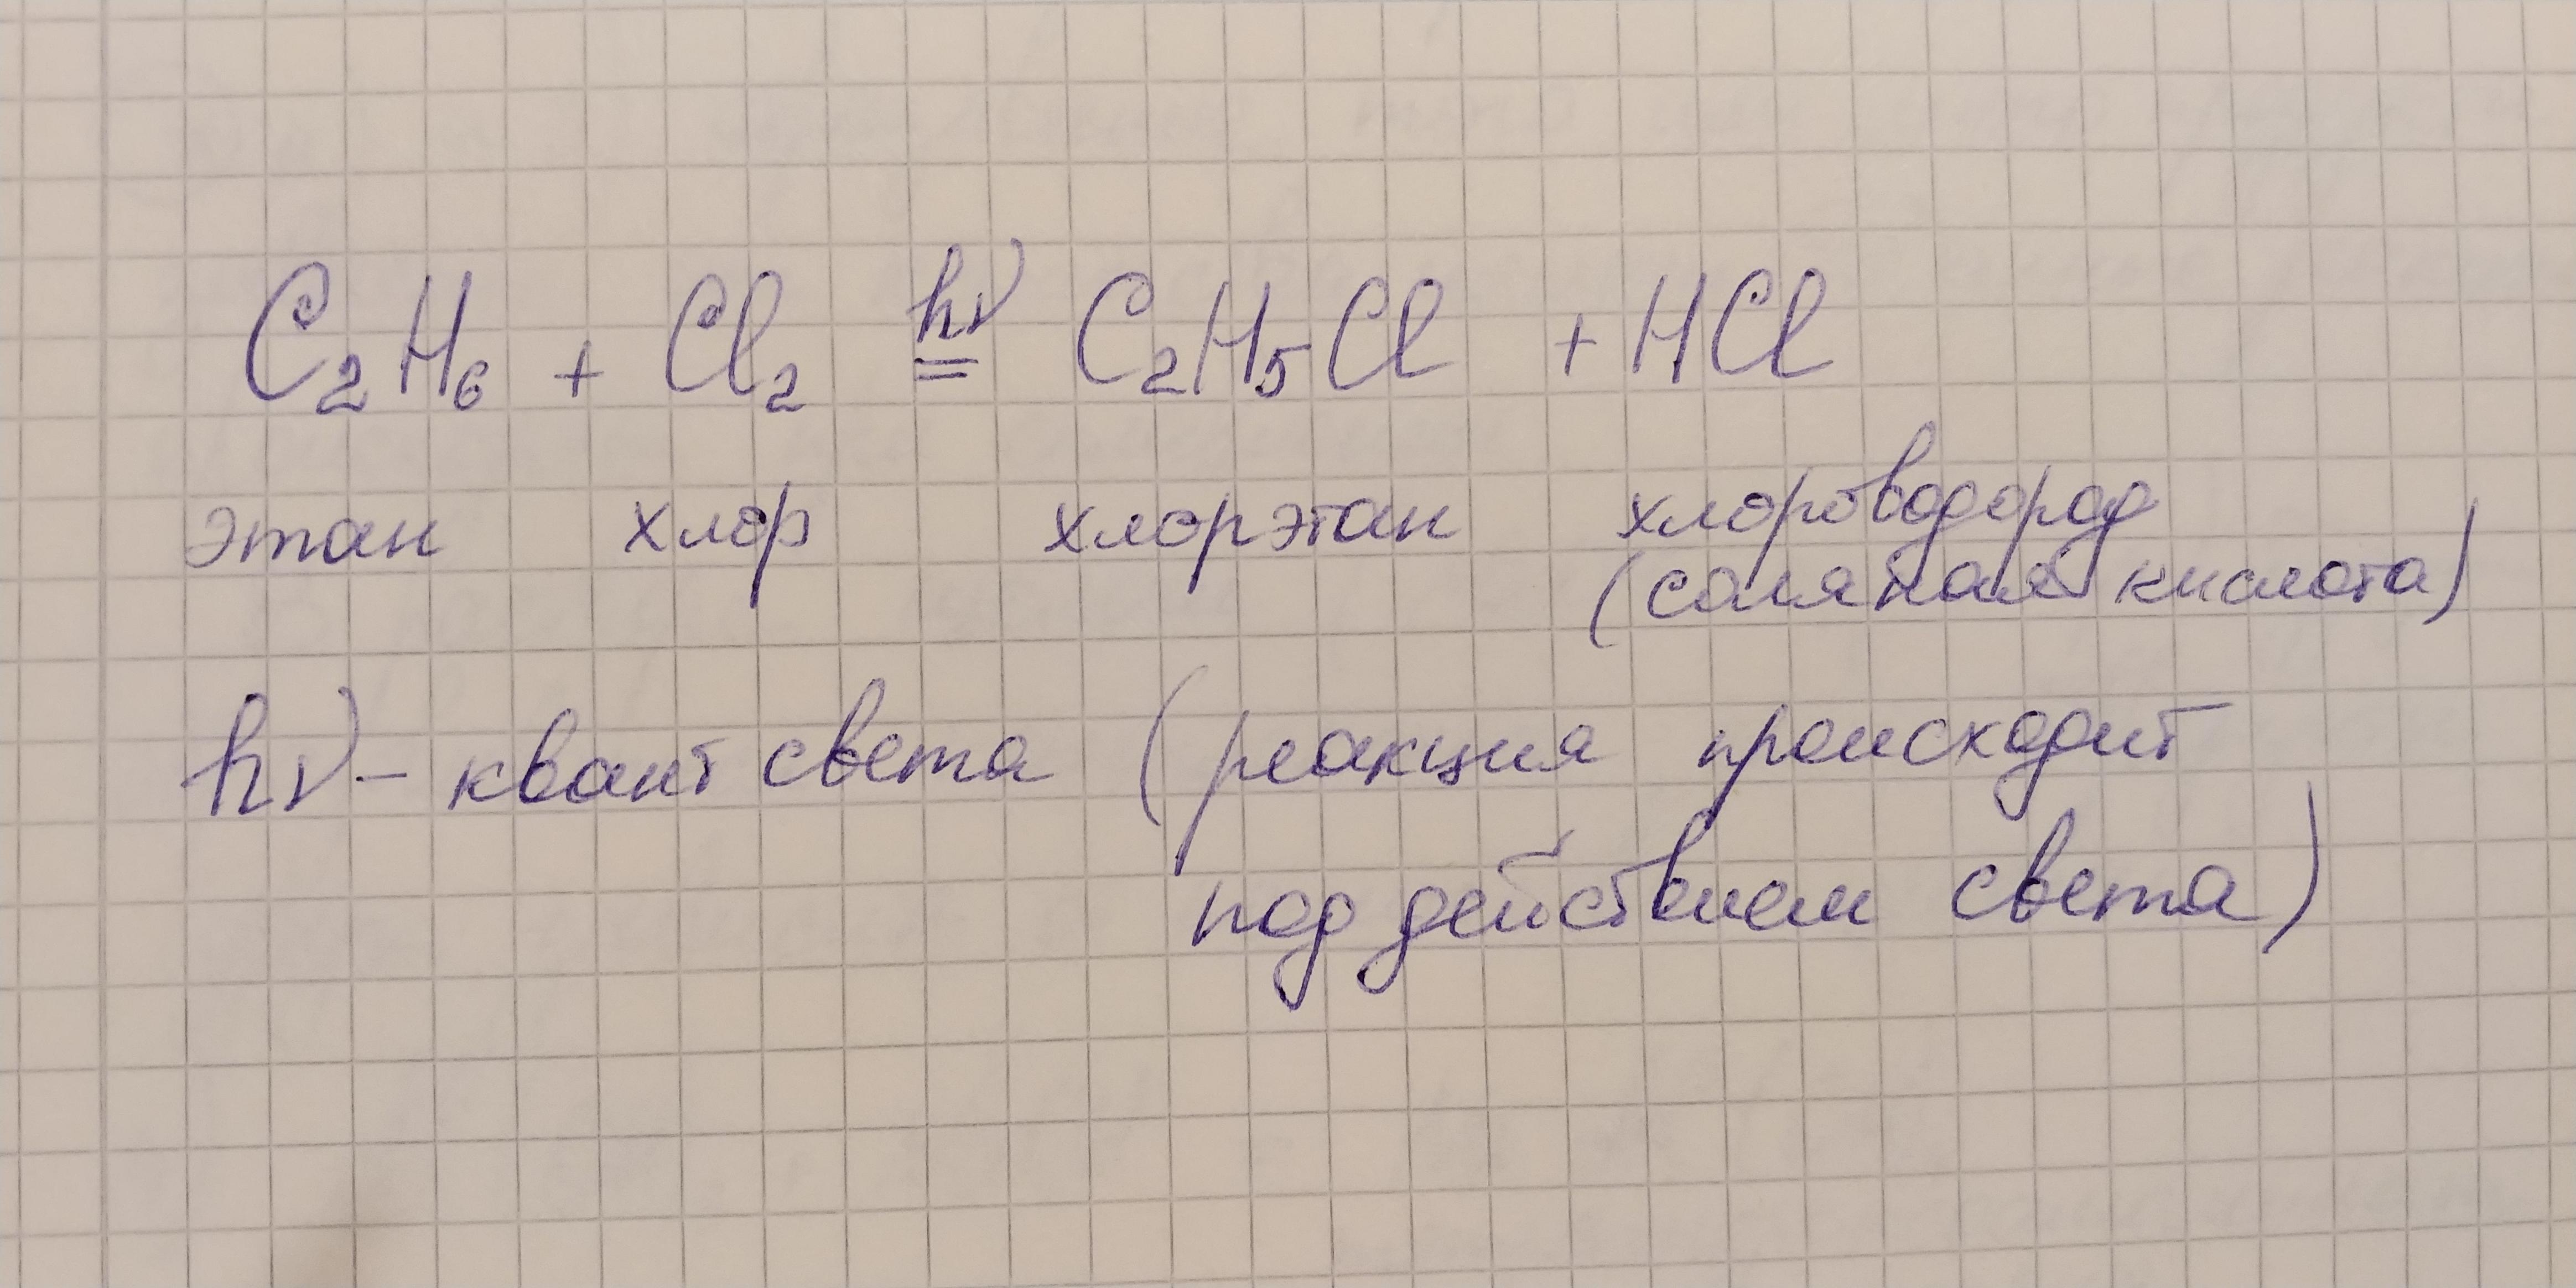 C₂H₆ + Cl₂ hν = C₂H₅Cl + HCl
этан хлор хлорэтан хлороводород
(соляная кислота)
hν – квант света (реакция происходит
под действием света)